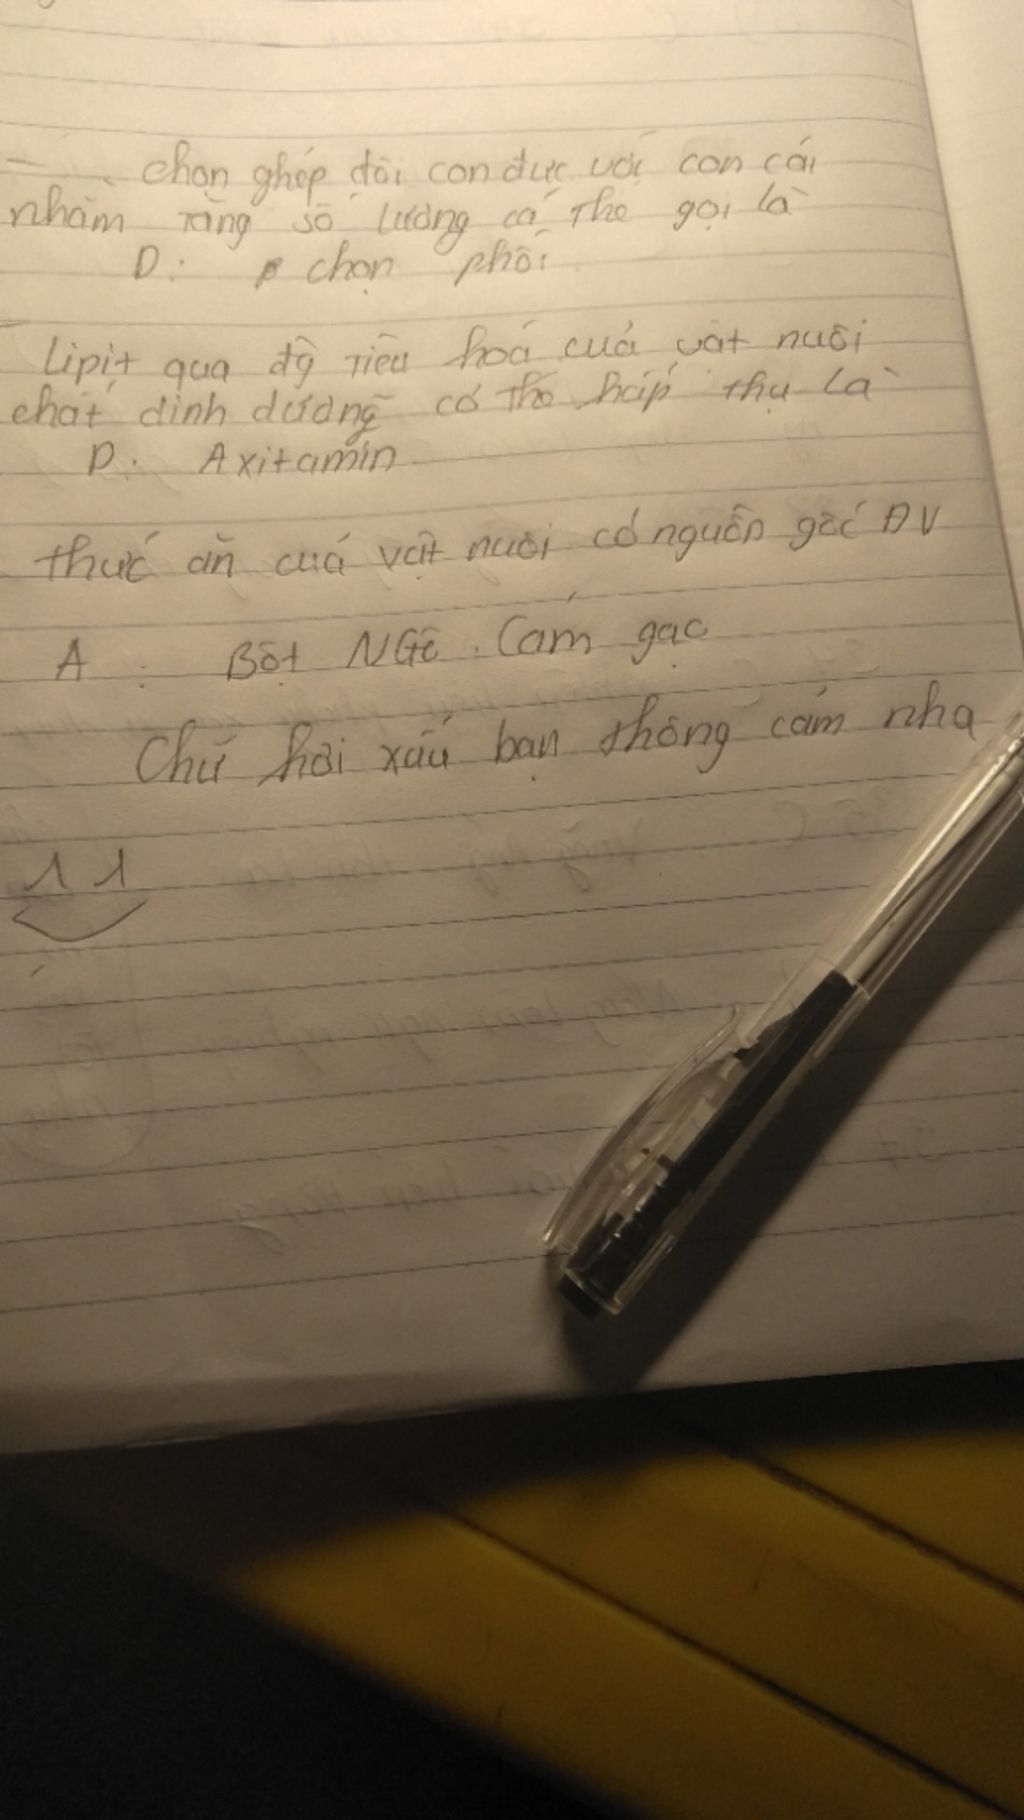 chọn ghép đôi con đực với con cái
nhằm tăng số lượng cá thể gọi là
D: chọn phối
Lipit qua đg tiêu hoá cuả vật nuôi
chất dinh dưỡng có thể hấp thụ là
D. Axitamin
thức ăn cuả vật nuôi có nguồn gốc ĐV
A : Bột NGô. Cám gạo
Chữ hơi xấu bạn thông cảm nha